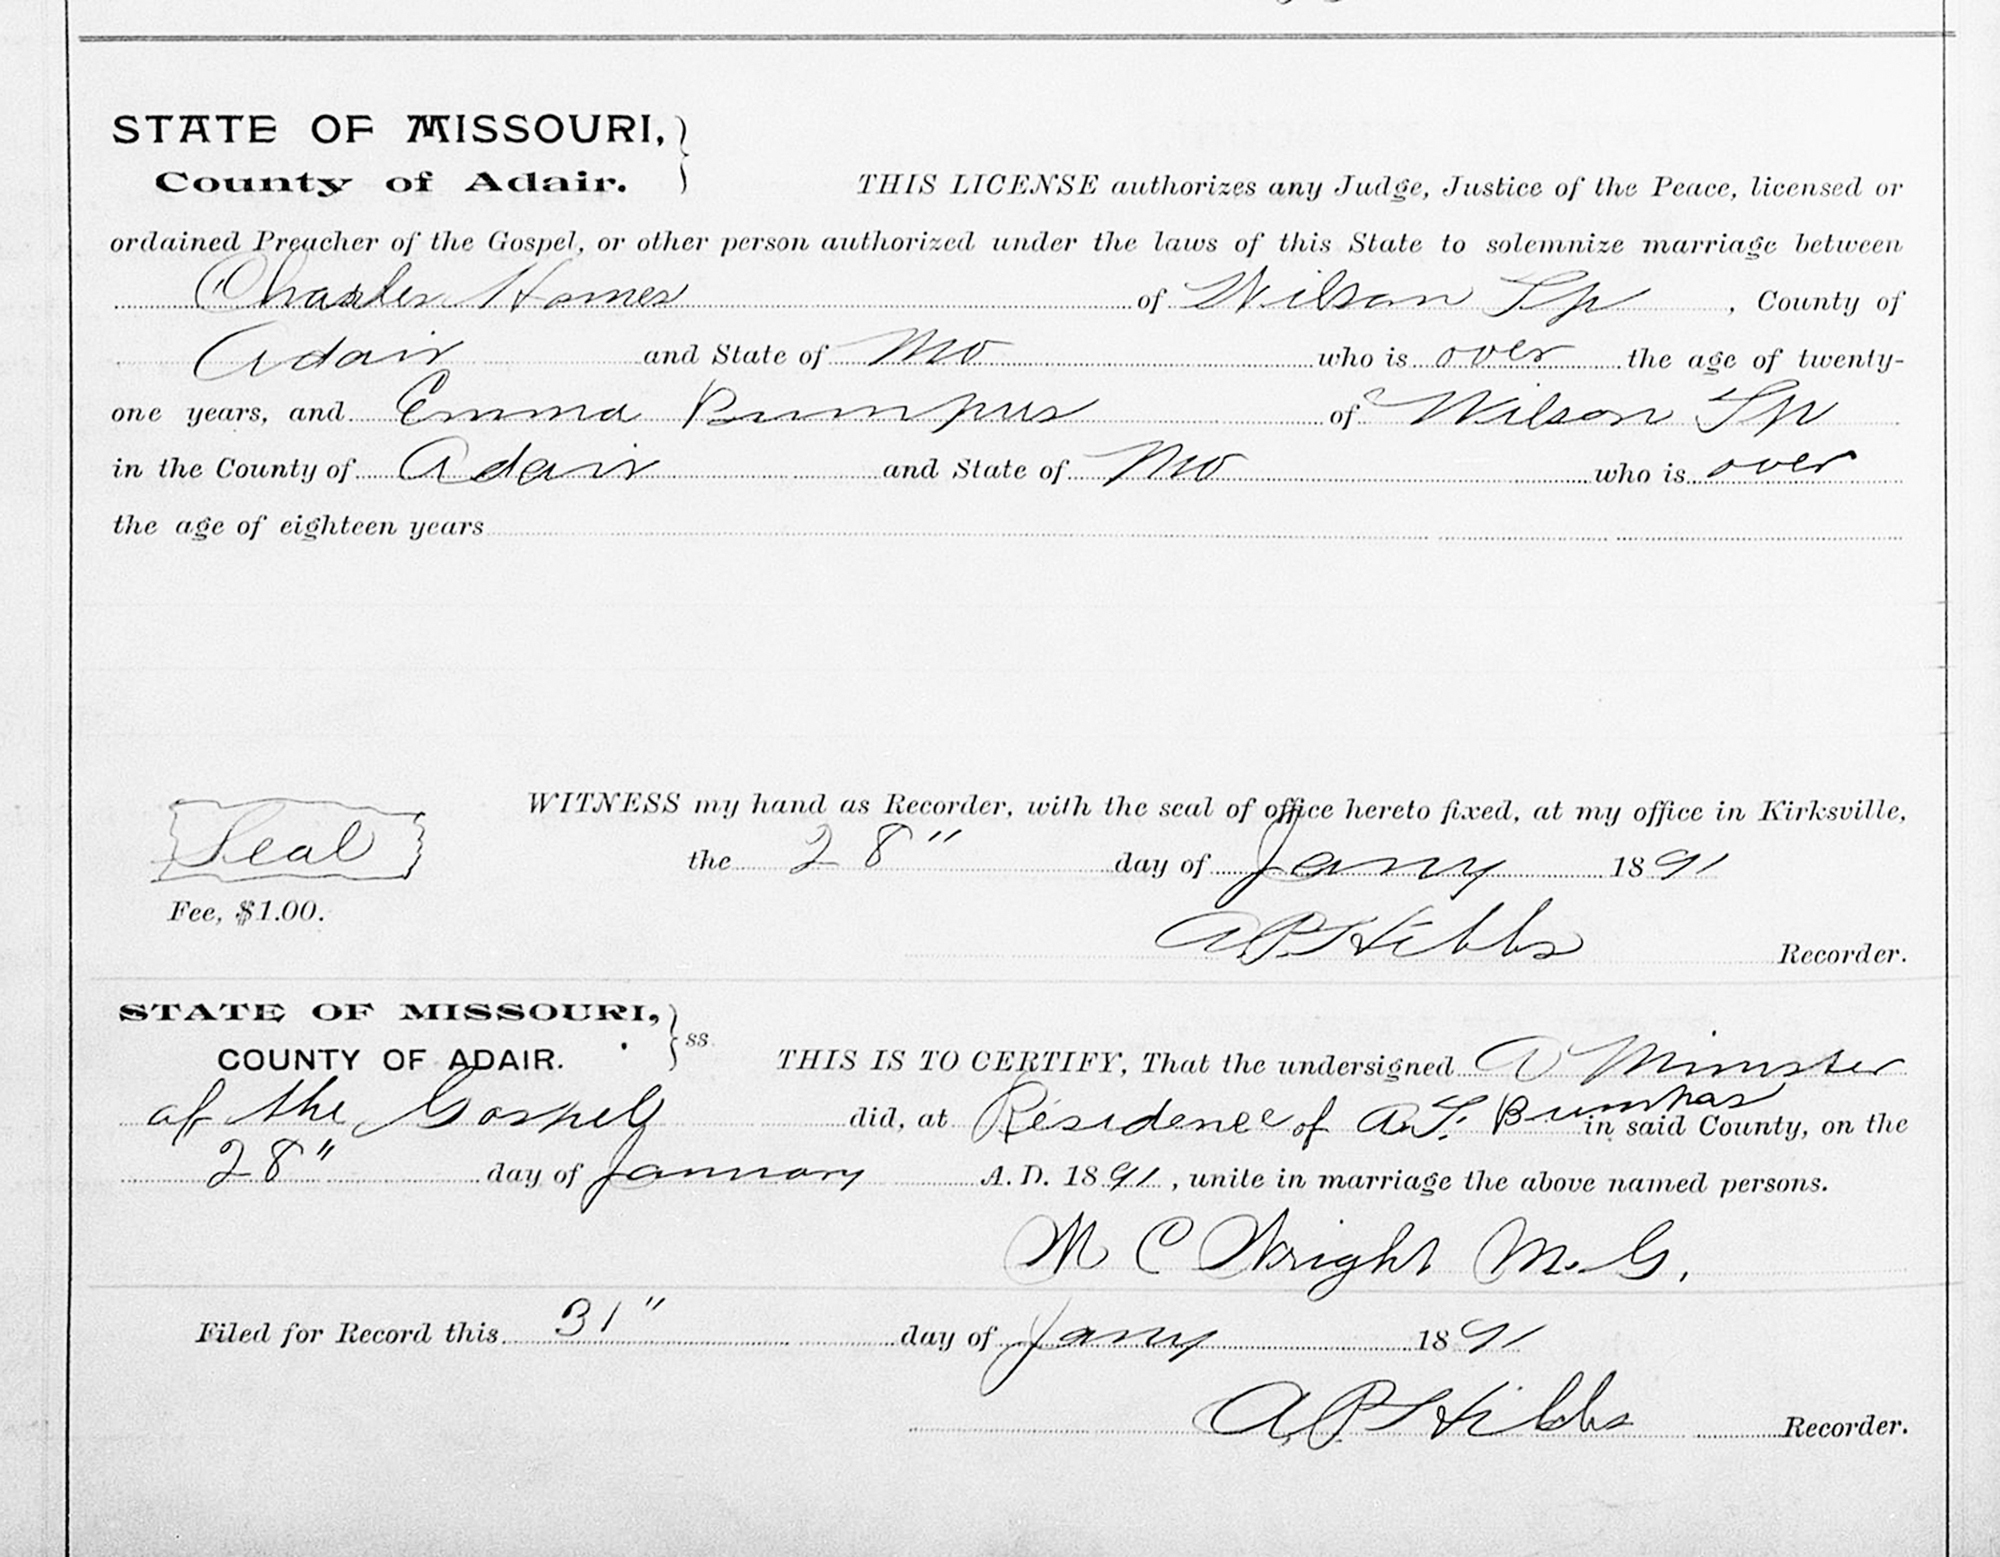 STATE OF MISSOURI,
County of Adair.
THIS LICENSE authorizes any Judge, Justice of the Peace, licensed or
ordained Preacher of the Gospel, or other person authorized under the laws of this State to solemnize marriage between
Charles Homes of Wilson Tp, County of
Adair and State of Mo who is over the age of twenty-
one years, and Emma Bumpus of Wilson Tp
in the County of Adair and State of Mo who is over
the age of eighteen years
WITNESS my hand as Recorder, with the seal of office hereto fixed, at my office in Kirksville,
Seal
the 28" day of Jany 1891
Fee, $1.00.
A.P. Hibbs Recorder.
STATE OF MISSOURI,
COUNTY OF ADAIR. ss
THIS IS TO CERTIFY, That the undersigned A Minister
of the Gospel did, at Residence of A.T. Bumpas in said County, on the
28" day of January A.D. 1891, unite in marriage the above named persons.
M C Wright M.G.
Filed for Record this 31" day of Jany 1891
A.P. Hibbs Recorder.